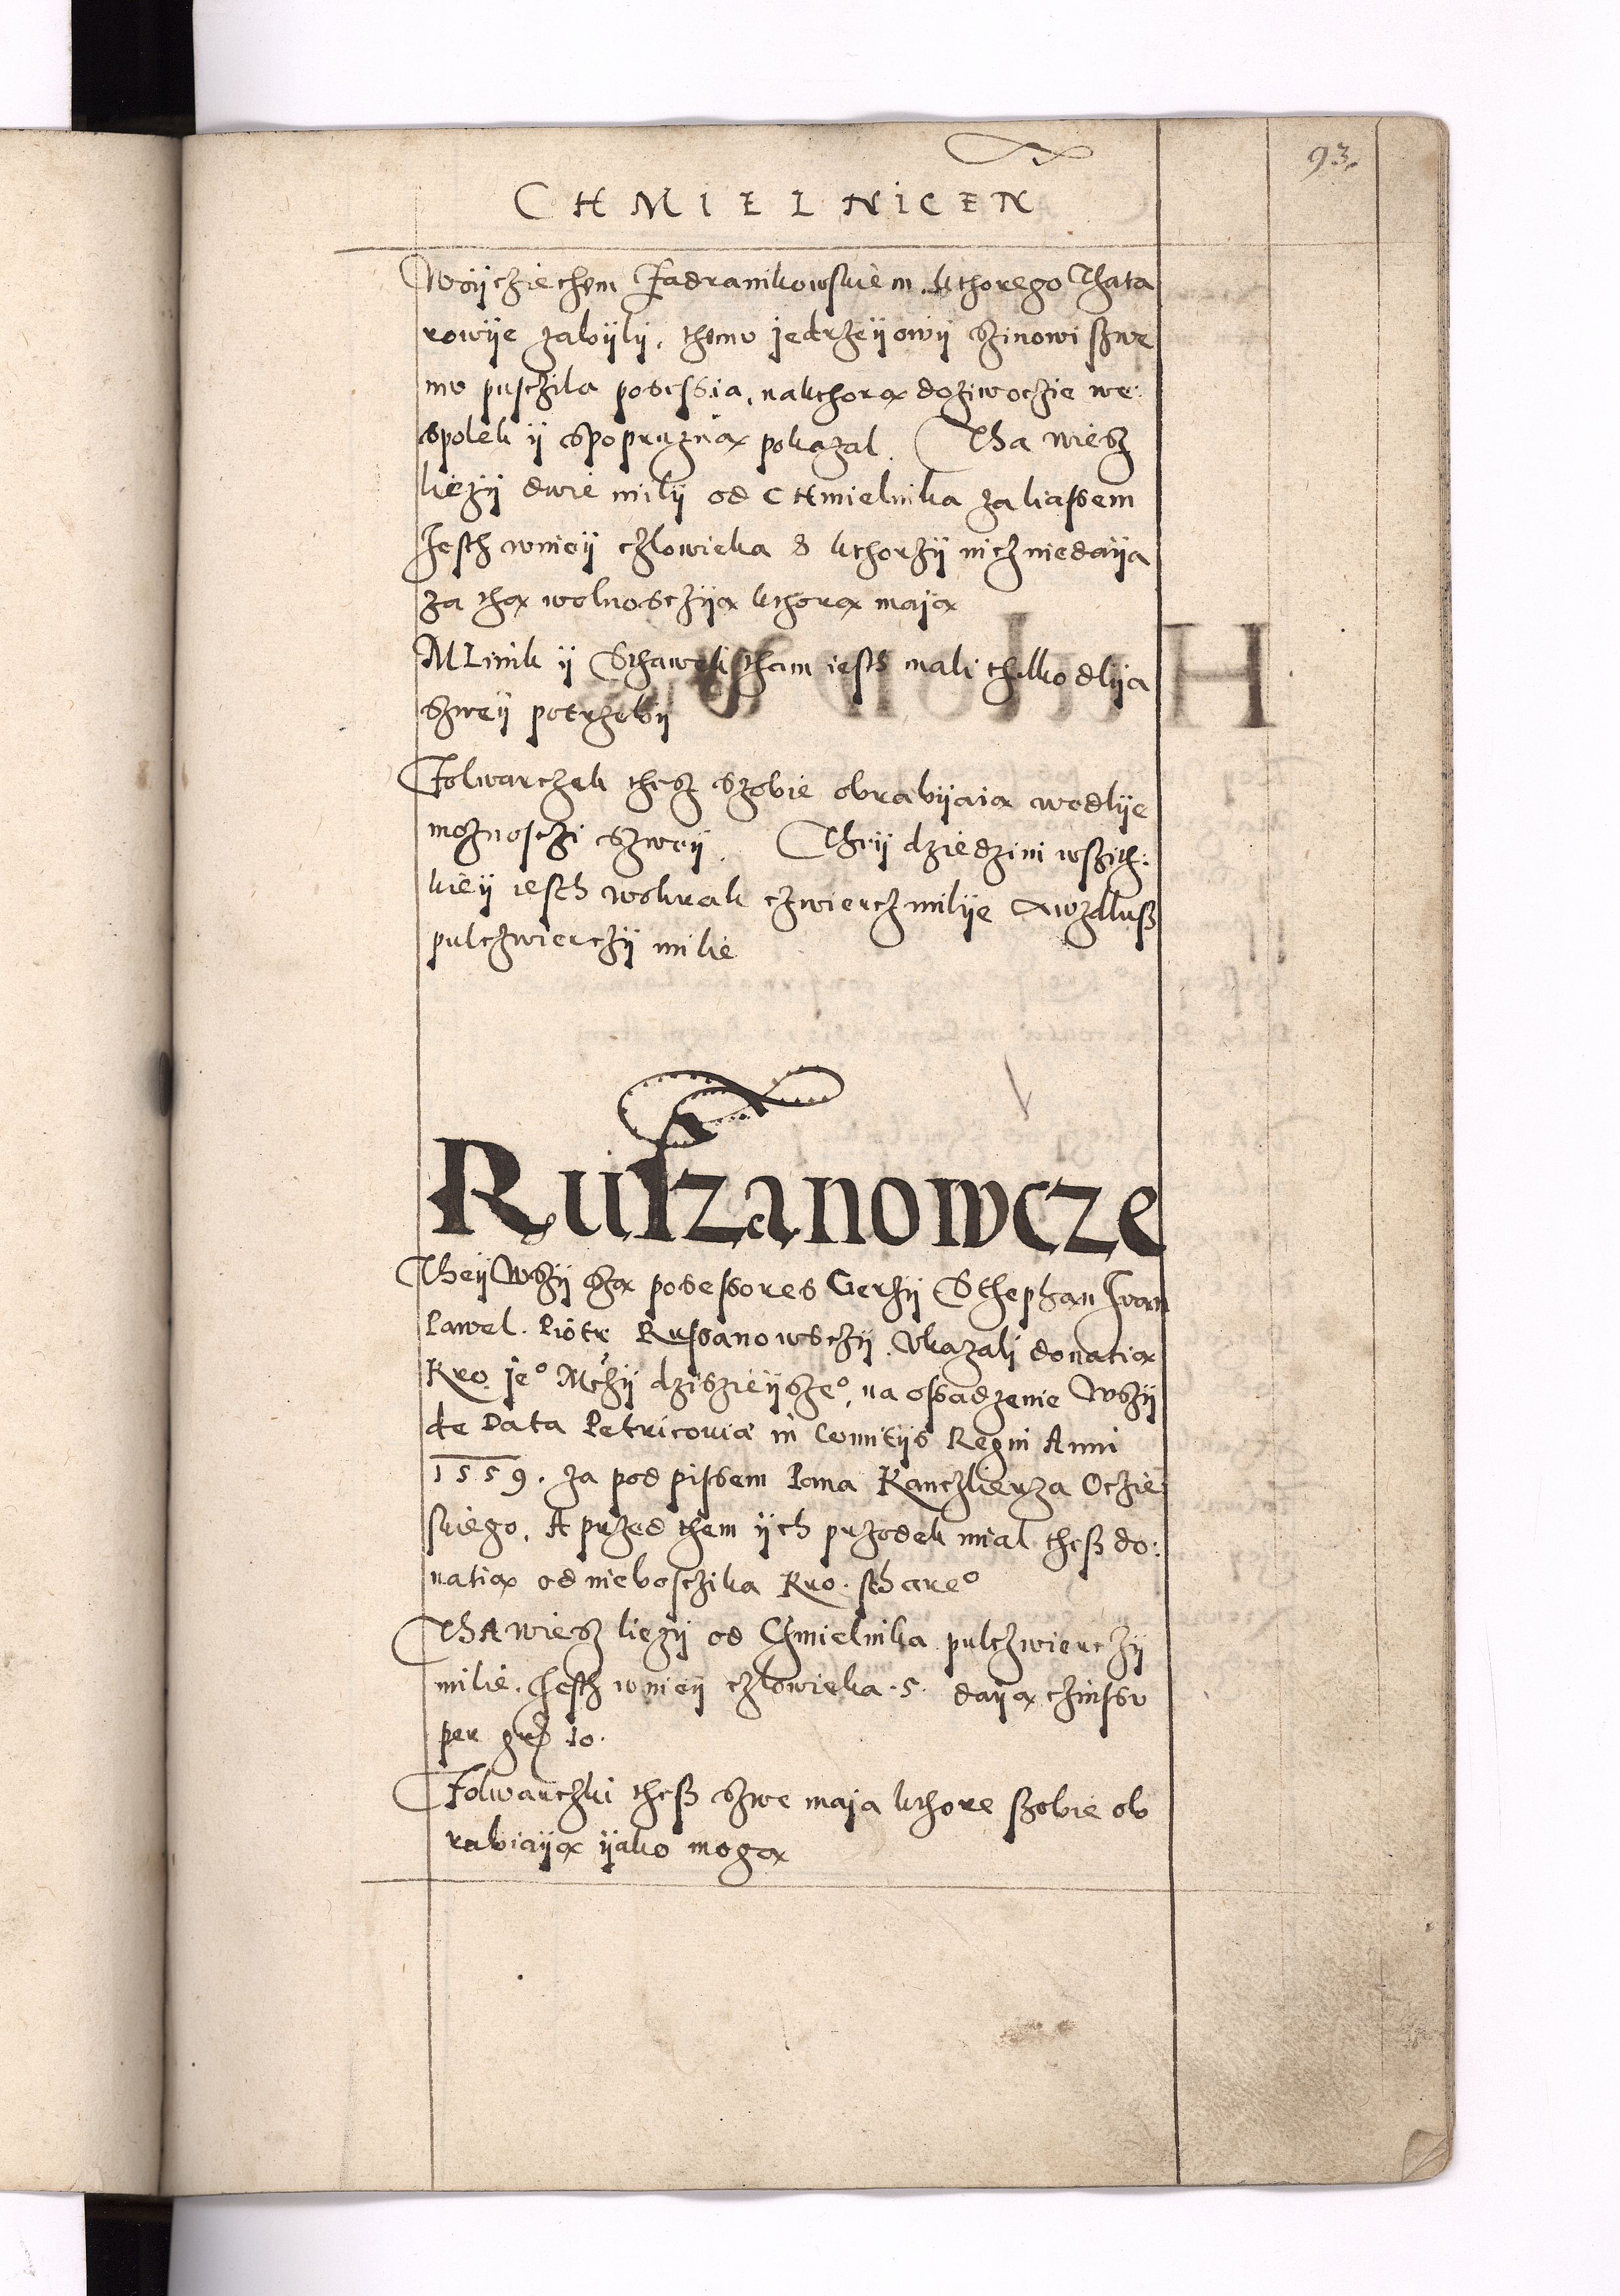 93.
CHMIELNICEN
Woÿcziechem Jadranikowskiem kthorego Thata
rowÿe zabÿlÿ, themv jedrzeÿowÿ Szinowi szwe
mv pusczila possessia, nakthorą doziwoczie we:
spolek ÿ Spopruzną pokazal. Tha wiesz
liezÿ dwie milÿ od CHmielnika za liassem
Jesth wnieÿ czlowieka 8 kthorzÿ nicz niedaÿa
za thą wolnosczÿą kthorą mają
MLinik ÿ Sthawek tham iesth mali thilko dlÿa
Szweÿ potrzebÿ
Folwarczek thesz Szobie obrabÿaią wedlÿe
moznosczi Szweÿ. Theÿ dziedzini wszith:
kieÿ iesth wokrak czwiercz milÿe Awzdlusz
pulczwierczÿ milie
Ruszanowcze
Theÿ Wszÿ Są possessores Gerzÿ Sthephan Jvan
Pawel. Piotr Russanowsczÿ. Vkazalj donatią
Kro. je° Mczÿ dziszieÿsze°, na ossadzenie Wszÿ
de Data Petricouiæ in Comitÿs Regni Anni
1559. za pod pissem Pana Kanczlierza Oczie:
skiego. A przed them ÿch przodek mial thesz do:
natią od niebosczika Kro. sthare°
ThA wiesz liezÿ od Chmielnika pulczwierczÿ
milie. Jesth wnieÿ czlowieka .5. daÿą czinssv
per gr 10.
Folwarczki thesz Szwe maja kthore szobie ob
rabiaÿą ÿako mogą